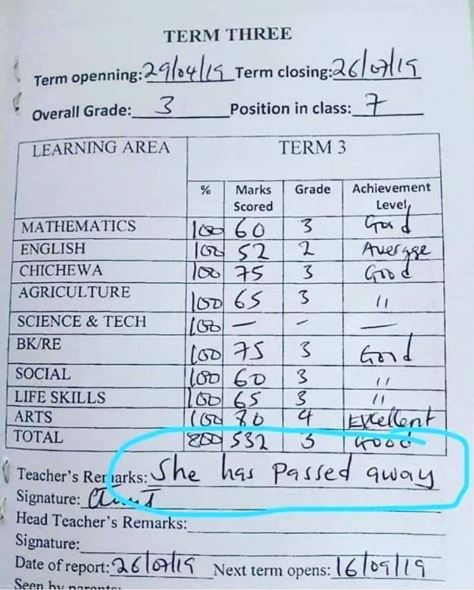 TERM THREE
Term openning: 29/04/19 Term closing: 26/07/19
Overall Grade: 3 Position in class: 7
LEARNING AREA TERM 3
% Marks Scored Grade Achievement Level
MATHEMATICS 100 60 3 Good
ENGLISH 100 52 2 Average
CHICHEWA 100 75 3 Good
AGRICULTURE 100 65 3 "
SCIENCE & TECH 100 — — —
BK/RE 100 75 3 Good
SOCIAL 100 60 3 "
LIFE SKILLS 100 65 3 "
ARTS 100 80 4 Excellent
TOTAL 800 532 3 Good
Teacher's Remarks: She has passed away
Signature:
Head Teacher's Remarks:
Signature:
Date of report: 26/07/19 Next term opens: 16/09/19
Seen by parents: